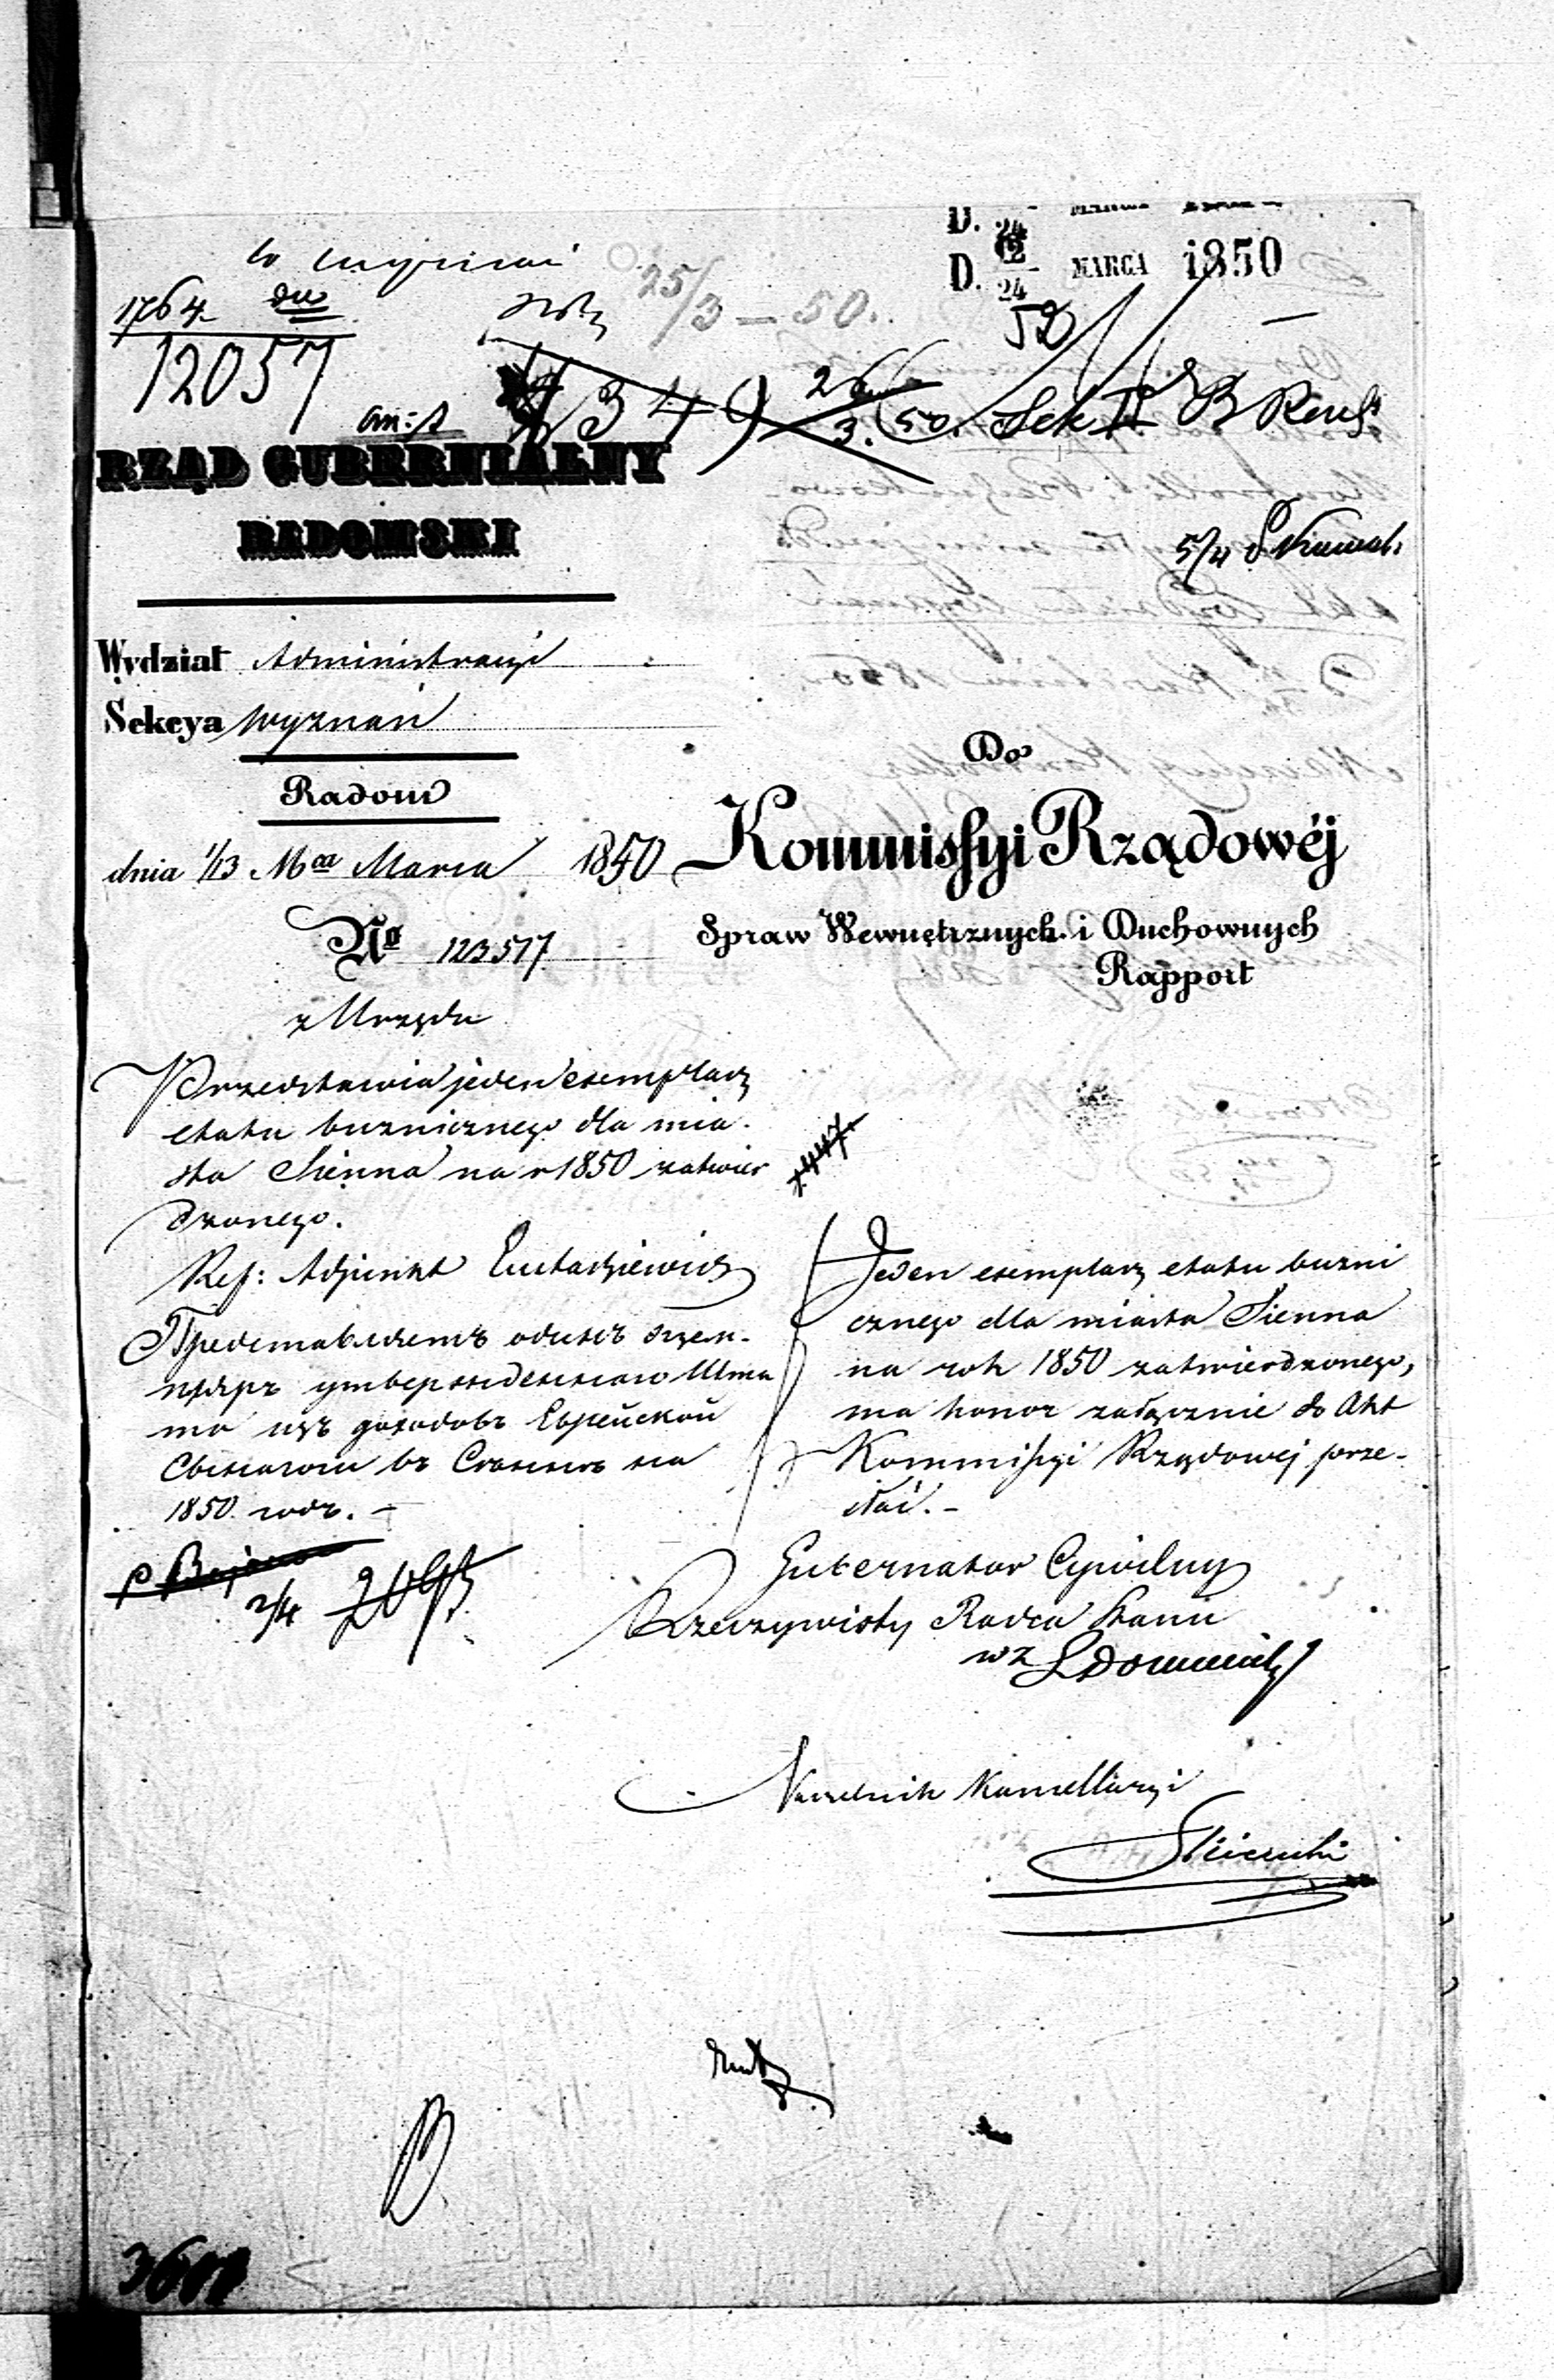 D. 12/24 MARCA 1850
1764
12057
25/3 – 50.
26/3. 50. Sek II
RZĄD GUBERNIALNY
RADOMSKI
5/4
Wydział Administracyi
Sekcya Wyznań
Radom
dnia 1/13 Mca Marca 1850
No 123517
z Urzędu
Do
Kommissyi Rządowéj
Spraw Wewnętrznych i Duchownych
Rapport
Przedstawia jeden exemplarz
etatu buznicznego dla mia-
sta Sienna na r 1850 zatwier
dzonego.
Ref: Adjunkt Eustachiewicz
Представляетъ одинъ экзем-
пляръ утвержденнаго Шта
та изъ доходовъ Еврейской
въ Сѣнно на
1850 годъ. –
2/4
Jeden exemplarz etatu buzni
cznego dla miasta Sienna
na rok 1850 zatwierdzonego,
ma honor załącznie do Akt
Kommissyi Rządowej prze-
słać. –
Gubernator Cywilny
Rzeczywisty Radca Stanu
wz
Naczelnik Kancellaryi